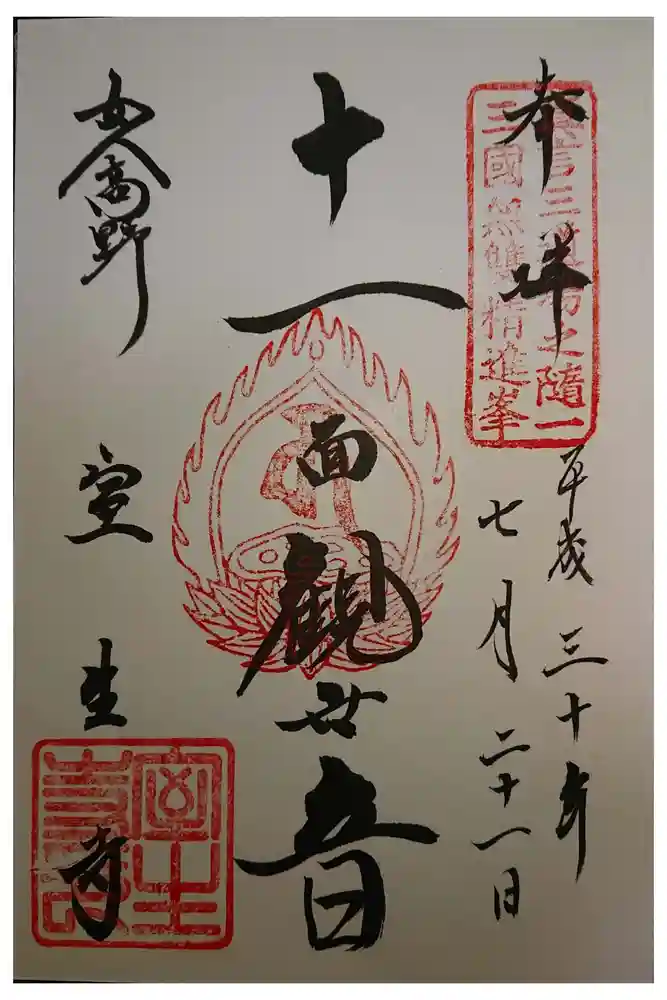 奉拝
真言三道場之隨一
三國無雙精進峯
平成三十年
七月二十一日
十一面観世音
女人高野
室生寺
室生寺